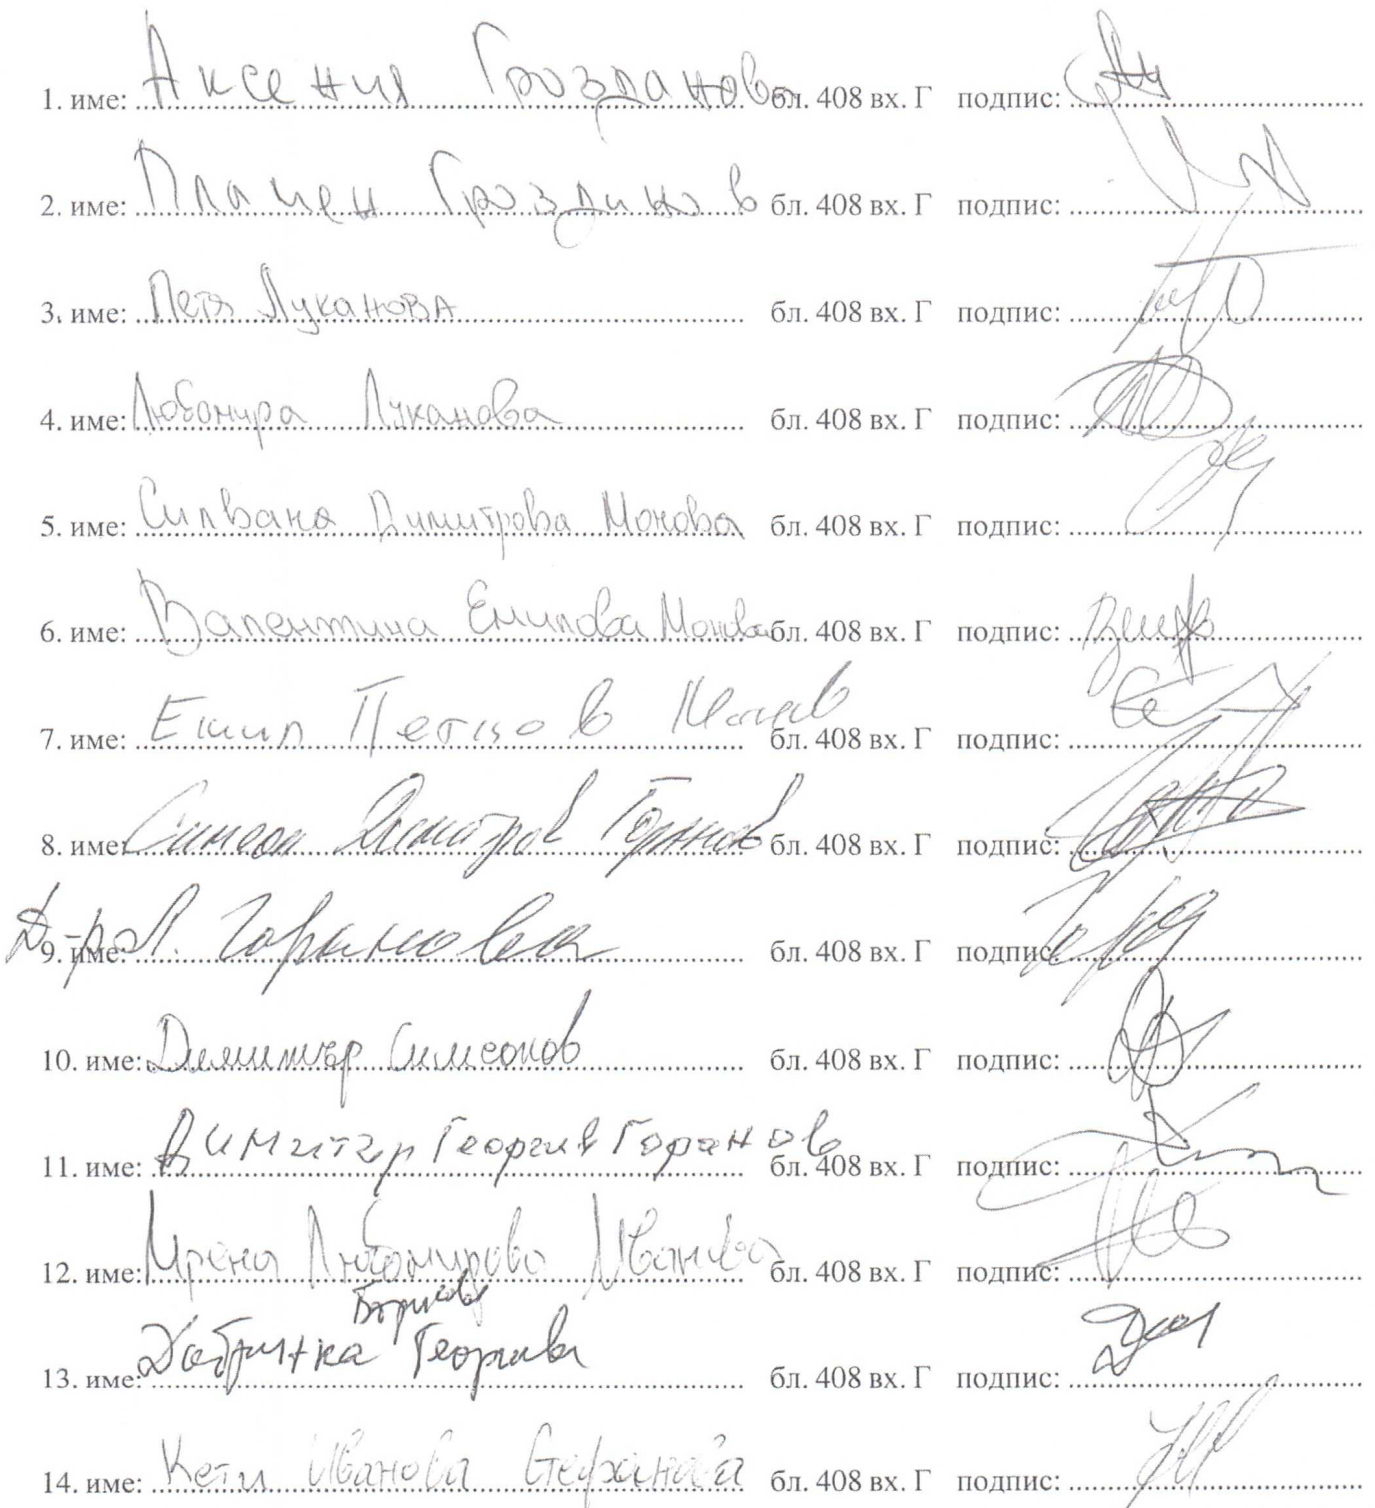 1. име: Аксения Грозданова бл. 408 вх. Г подпис:
2. име: Пламен Грозданов бл. 408 вх. Г подпис:
3. име: Петя Луканова бл. 408 вх. Г подпис:
4. име: Любомира Луканова бл. 408 вх. Г подпис:
5. име: Силвана Димитрова Монова бл. 408 вх. Г подпис:
6. име: Валентина Емилова Монова бл. 408 вх. Г подпис:
7. име: Емил Петров Монов бл. 408 вх. Г подпис:
8. име: Симеон Димитров Горанов бл. 408 вх. Г подпис:
9. име: Д-р Л. Горанова бл. 408 вх. Г подпис:
10. име: Димитър Симеонов бл. 408 вх. Г подпис:
11. име: Димитър Георгиев Горанов бл. 408 вх. Г подпис:
12. име: Ирена Любомирова Иванова бл. 408 вх. Г подпис:
13. име: Добринка Георгиева бл. 408 вх. Г подпис:
14. име: Кети Иванова Стефанова бл. 408 вх. Г подпис: